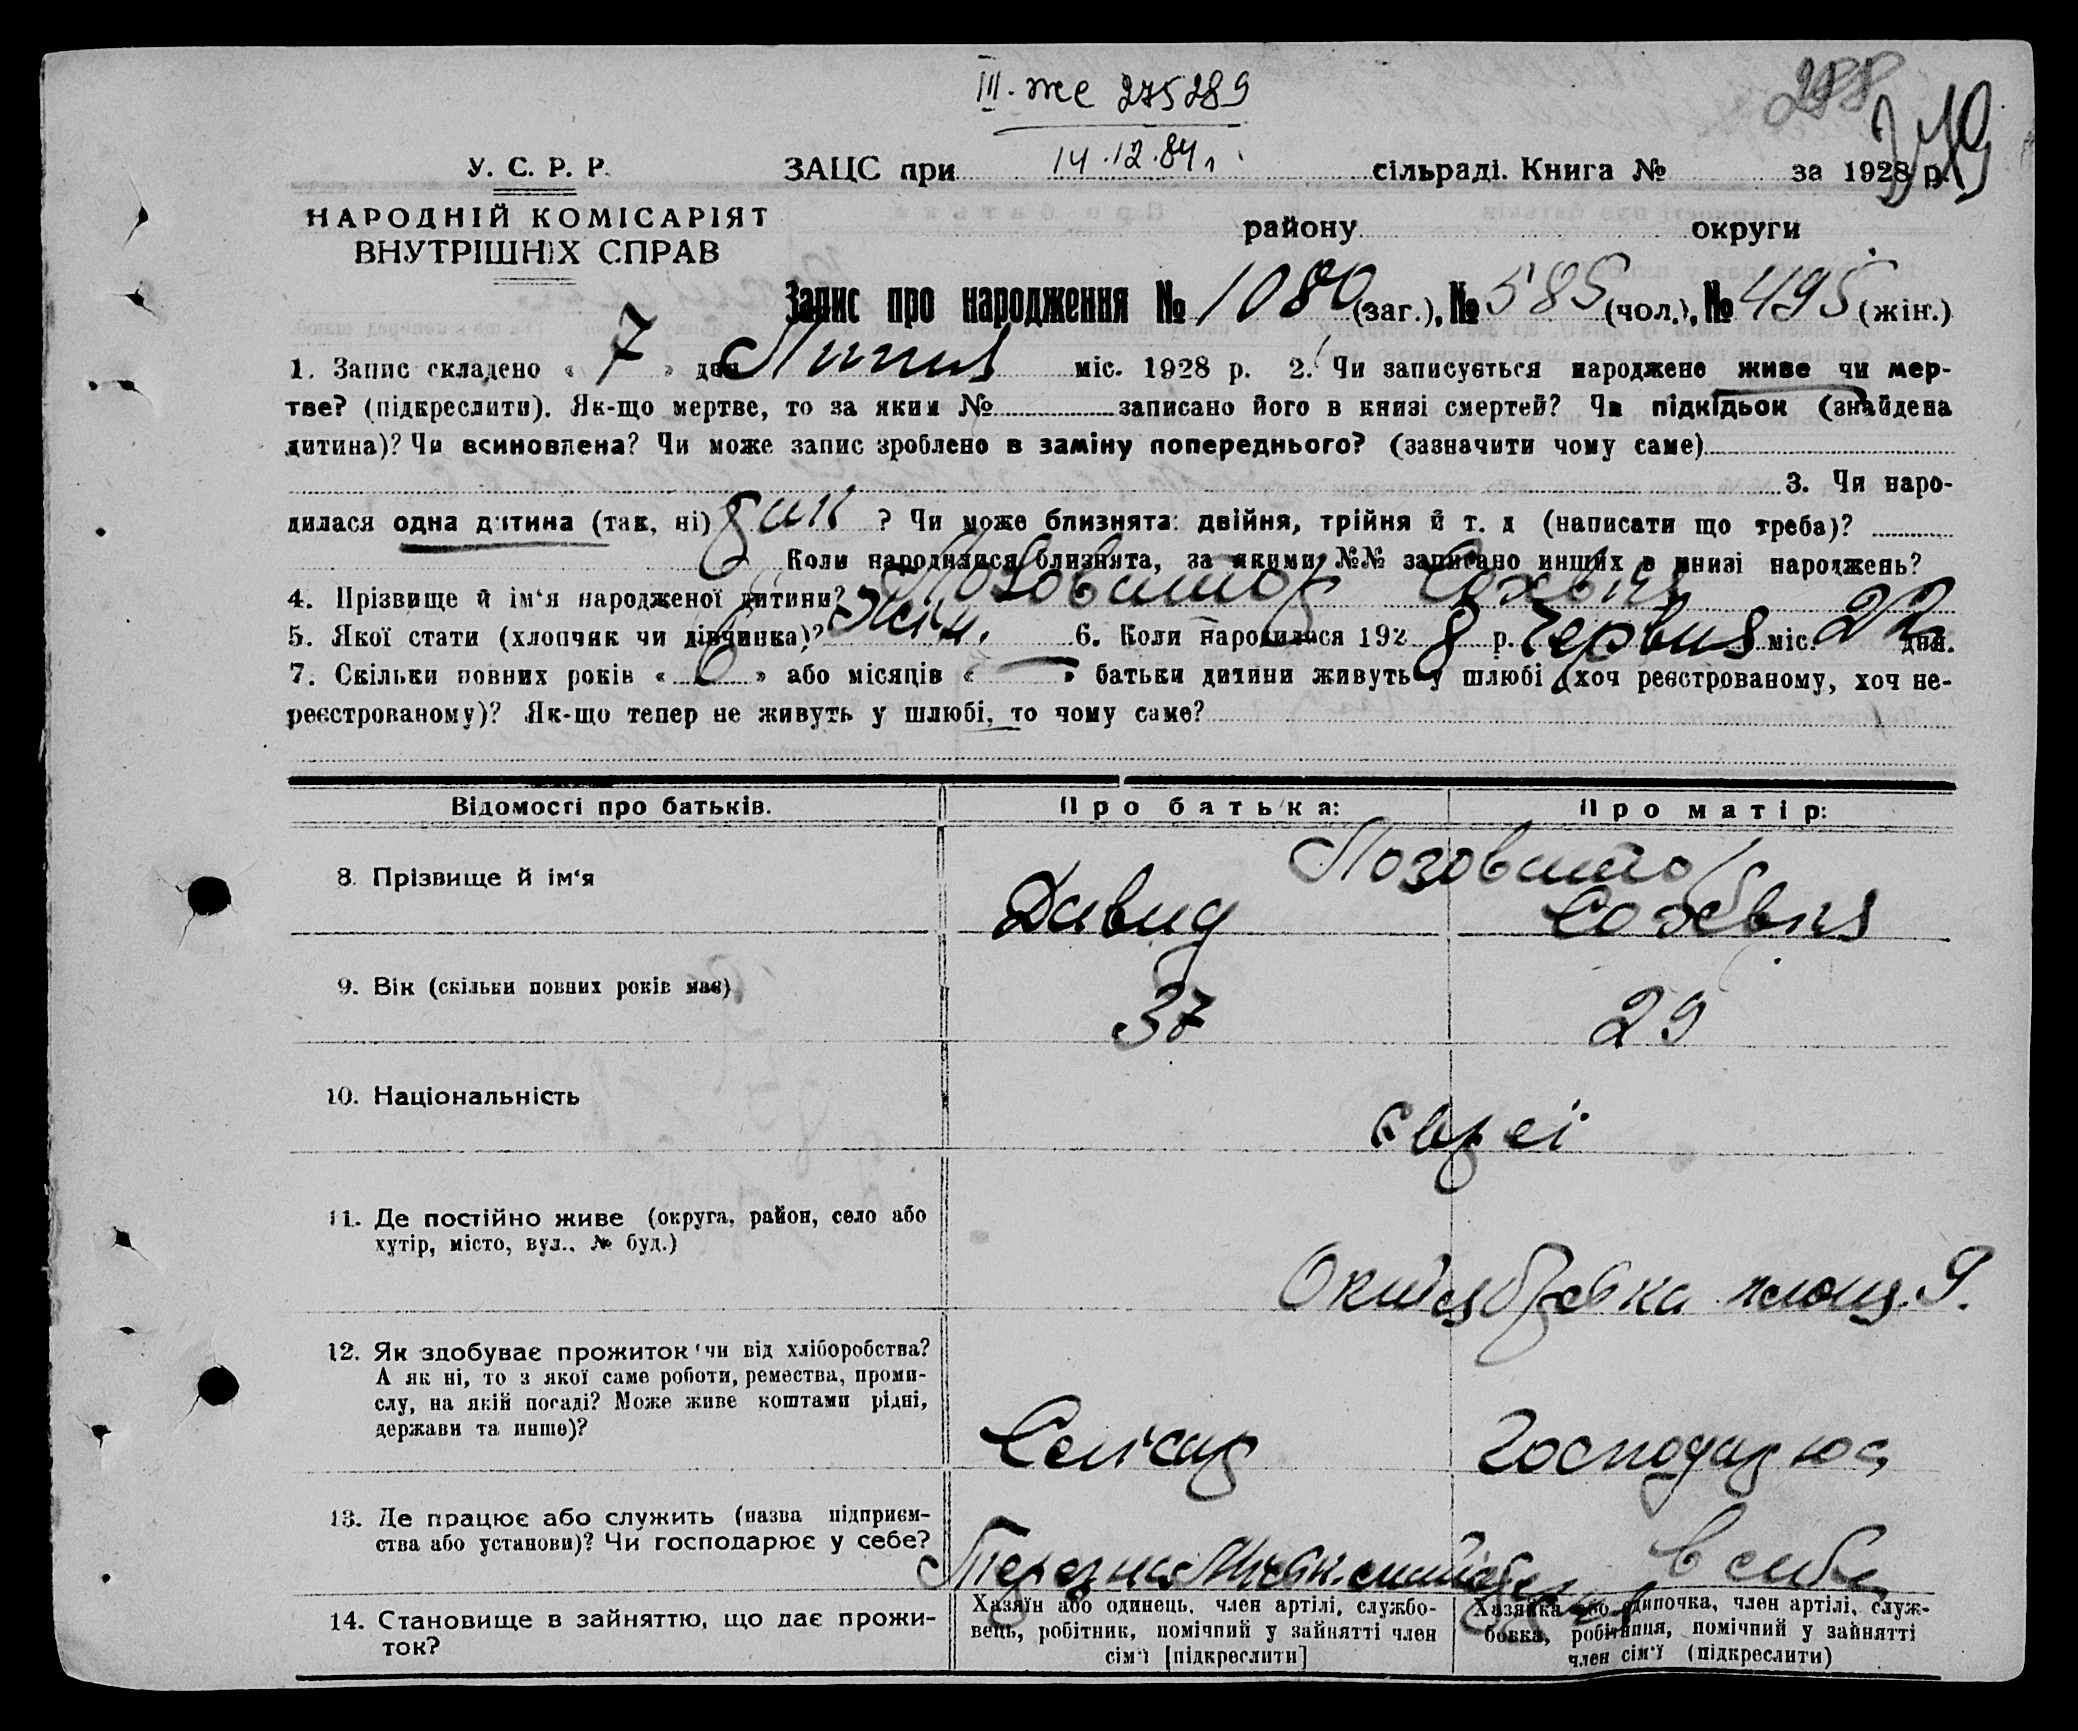 III. же 275289
288
319
14.12.84 г.
У. С. Р. Р. ЗАЦС при сільраді. Книга № за 1928 р.
НАРОДНІЙ КОМІСАРІЯТ
ВНУТРІШНІХ СПРАВ
району округи
Запис про народження № 1080 (заг.), № 585 (чол.), № 495 (жін.)
1. Запис складено « 7 » дня Липня міс. 1928 р. 2. Чи записується народжене живе чи мер-
тве? (підкреслити). Як-що мертве, то за яким № записано його в книзі смертей? Чи підкідьок (знайдена
дитина)? Чи всиновлена? Чи може запис зроблено в заміну попереднього? (зазначити чому саме)
3. Чи наро-
дилася одна дитина (так, ні) ? Чи може близнята: двійня, трійня й т. д (написати що треба)?
Коли народилися близнята, за якими №№ записано инших в книзі народжень?
4. Прізвище й ім‘я народженої дитини?
5. Якої стати (хлопчик чи дівчинка)? жін. 6. Коли народилася 192 8 р. Червня міс. 22 дня.
7. Скільки повних років « 6 » або місяців « — » батьки дитини живуть у шлюбі (хоч реєстрованому, хоч не-
реєстрованому)? Як-що тепер не живуть у шлюбі, то чому саме?
Відомості про батьків. Про батька: Про матір:
8. Прізвище й ім‘я
Давид
9. Вік (скільки повних років має) 37 29
10. Національність євреї
11. Де постійно живе (округа, район, село або
хутір, місто, вул., № буд.)
площ. 9.
12. Як здобуває прожиток чи від хліборобства?
А як ні, то з якої саме роботи, ремества, проми-
слу, на якій посаді? Може живе коштами рідні,
держави та инше)?
Господарює
13. Де працює або служить (назва підприєм-
ства або установи)? Чи господарює у себе?
в себе
14. Становище в зайняттю, що дає прожи-
ток?
Хазяїн або одинець, член артілі, службо-
вець, робітник, помічний у зайнятті член
сім‘ї [підкреслити]
Хазяйка або одиночка, член артілі, служ-
бовка, робітниця, помічний у зайнятті
член сім‘ї (підкреслити)